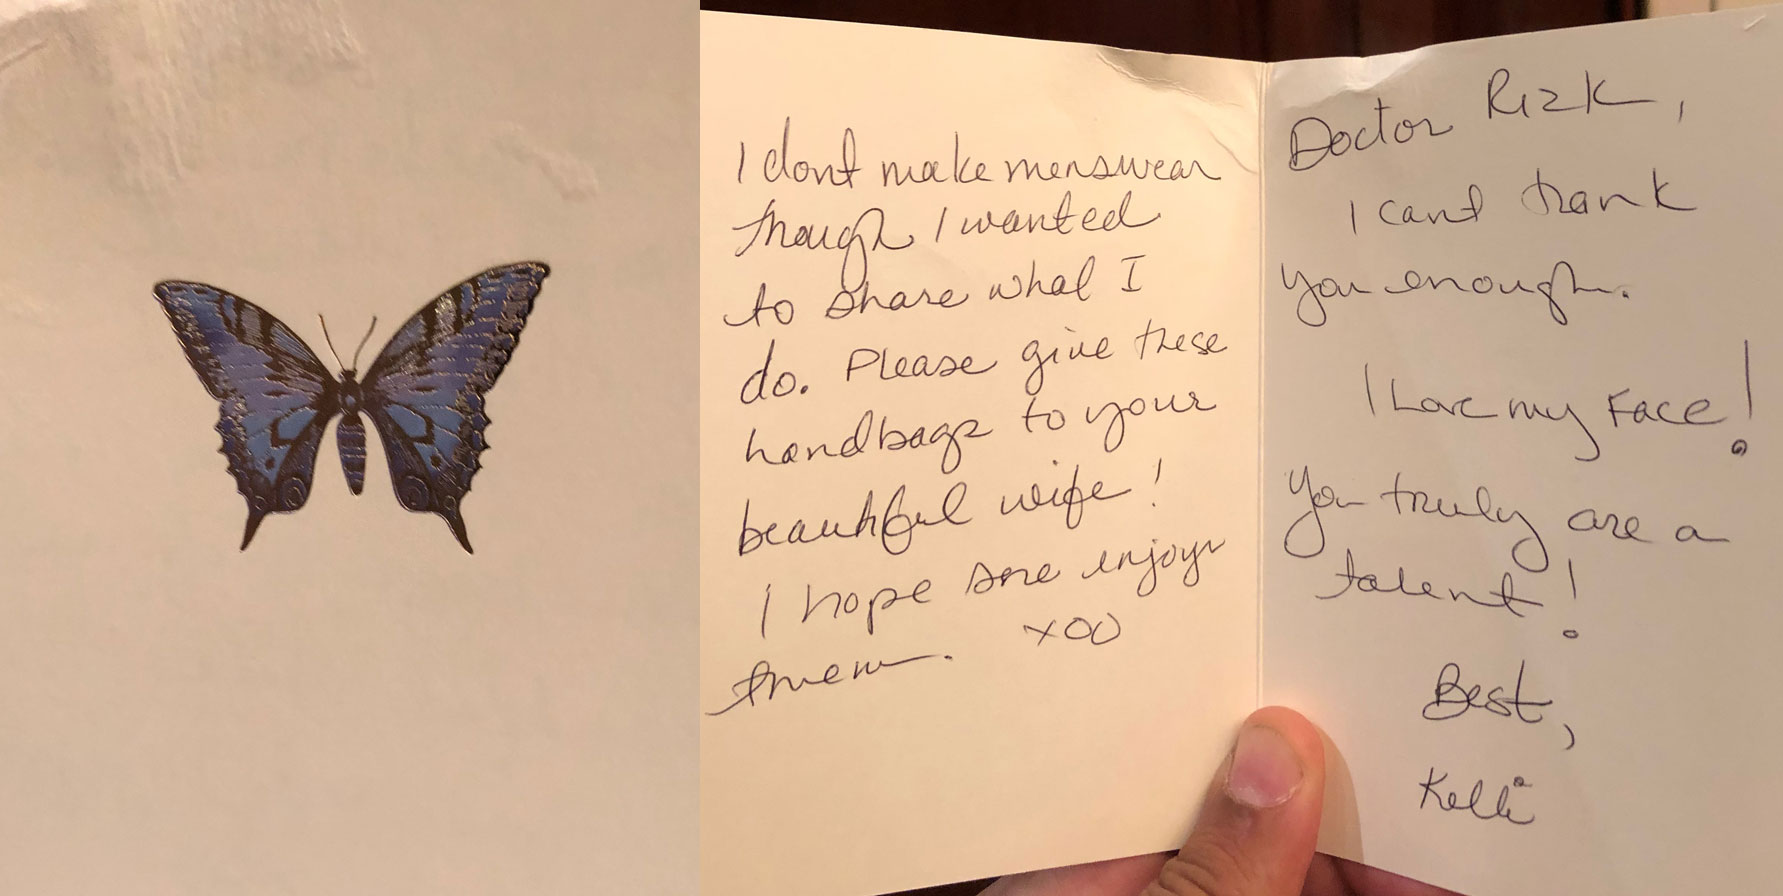 I dont make menswear
though I wanted
to share what I
do. Please give these
handbags to your
beautiful wife!
I hope she enjoys
them. xoo
Doctor Rizk,
I cant thank
you enough.
I Love my Face!
You truly are a
talent!
Best,
Kelli